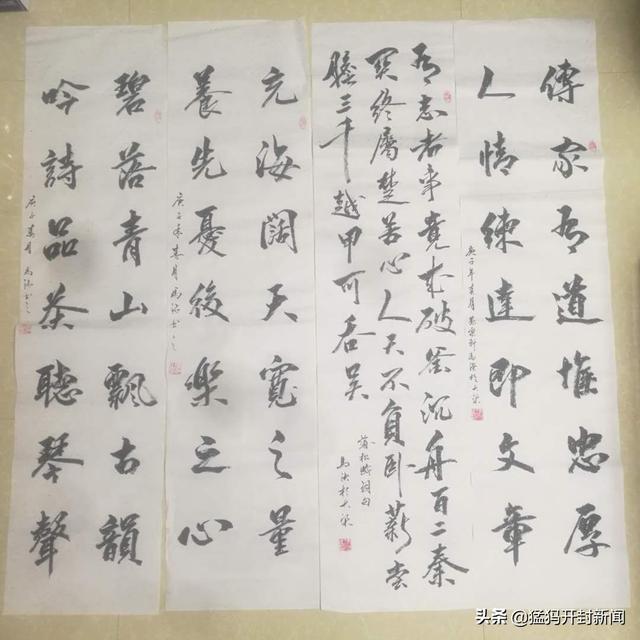 傳家有道惟忠厚
人情練達即文章
庚子年春月
有志者事竟成破釜沉舟百二秦
關終屬楚苦心人天不負臥薪嘗
膽三千越甲可吞吳
於大梁
充海闊天寬之量
養先憂後樂之心
庚子年春月
碧落青山飄古韻
吟詩品茶聽琴聲
庚子春月
头条 @猛犸开封新闻